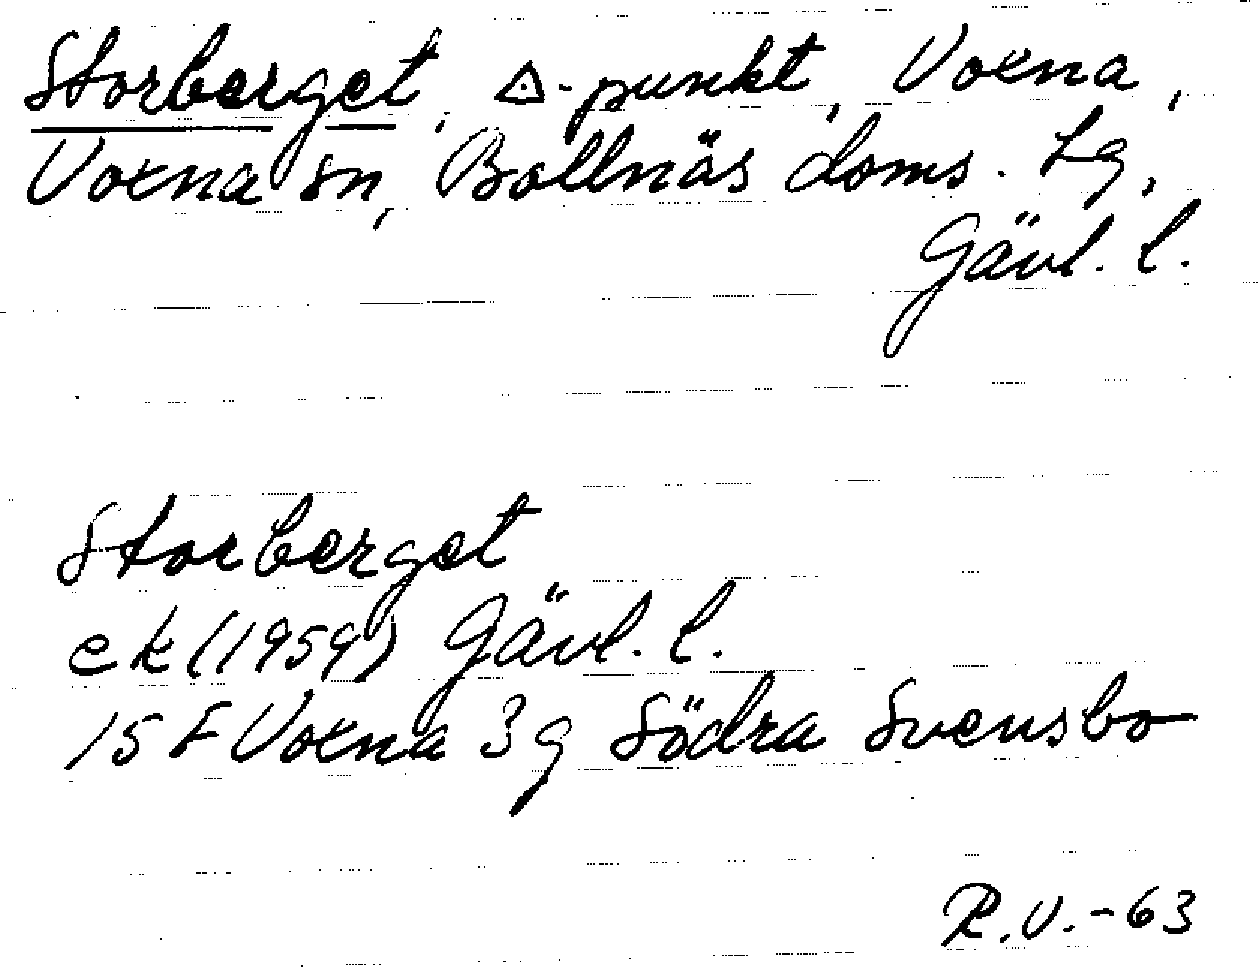 Storberget, △-punkt, Voxna,
Voxna sn, Bollnäs doms. Lg,
Gävl. l.
Storberget
ek (1959) Gävl. l.
15 F Voxna 3 g Södra Svensbo
R.V. -63